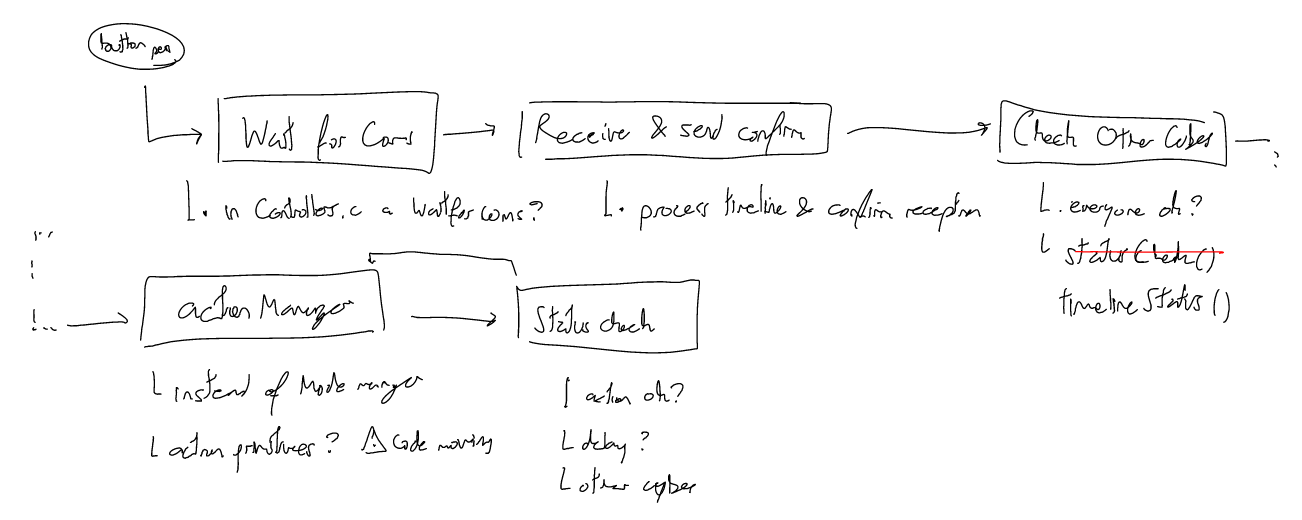 button
Wait for Coms
Receive & send confirm
Check Other Cubes
?
. in Controller.c a Waitforcoms?
. process timeline & confirm reception
. everyone ok?
statusCheck()
timelineStatus()
action Manager
Status check
instead of Mode manager
action primitives? ⚠ Code moving
action ok?
delay?
other